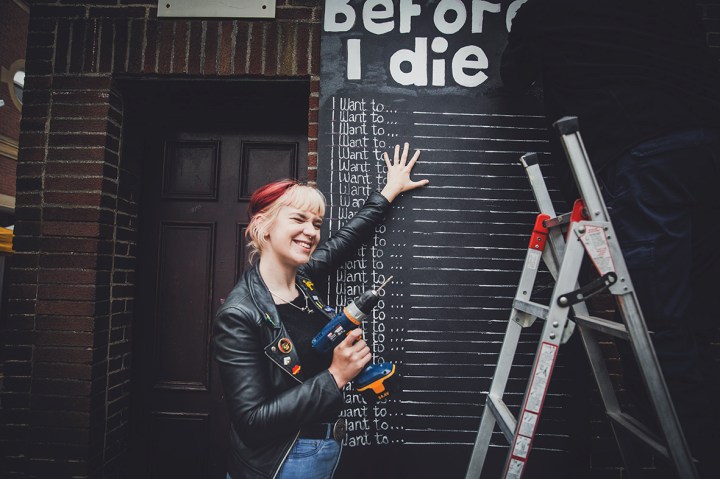 Before
I die
I Want to...
I Want to...
I Want to...
I Want to...
I Want to
I Want to
I Want to
I Want to
I Want to
I Want to
I Want to...
I Want to...
Want to...
Want to...
Want to...
Want to...
Want to...
Want to...
Want to...
Want to...
Want to...
Want to...
Want to...
Want to...
Want to...
Want to...